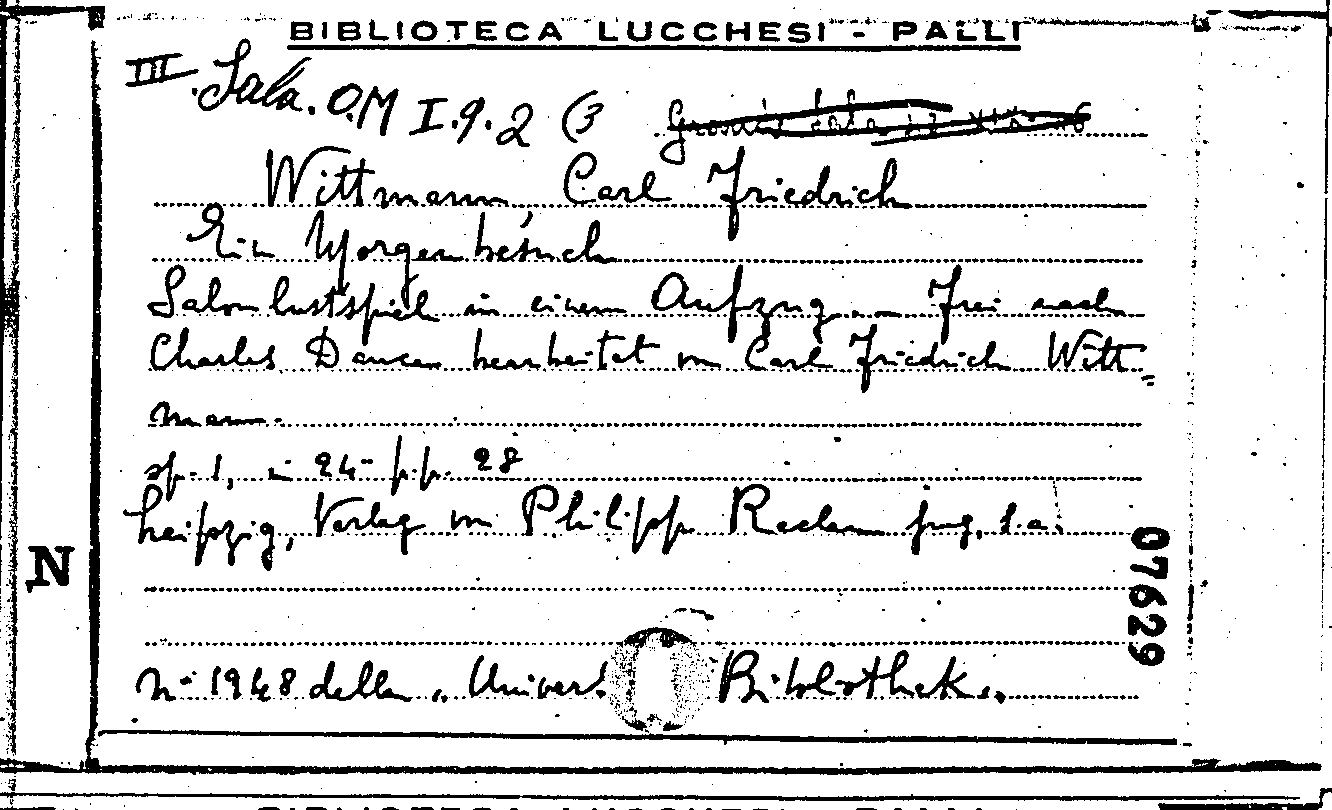 BIBLIOTECA LUCCHESI - PALLI
III Sala. O.M I.9.2 (3
Wittmann, Carl Friedrich
Ein Morgenbesuch
Salonlustspiel in einem Aufzug. Frei nach
Charles Dance bearbeitet von Carl Friedrich Witt=
mann.
op. 1, in 24° p.p. 28
Leipzig, Verlag von Philipp Reclam jug, s.a.
N
07629
N° 1948 della „ Univers. Bibliothek „